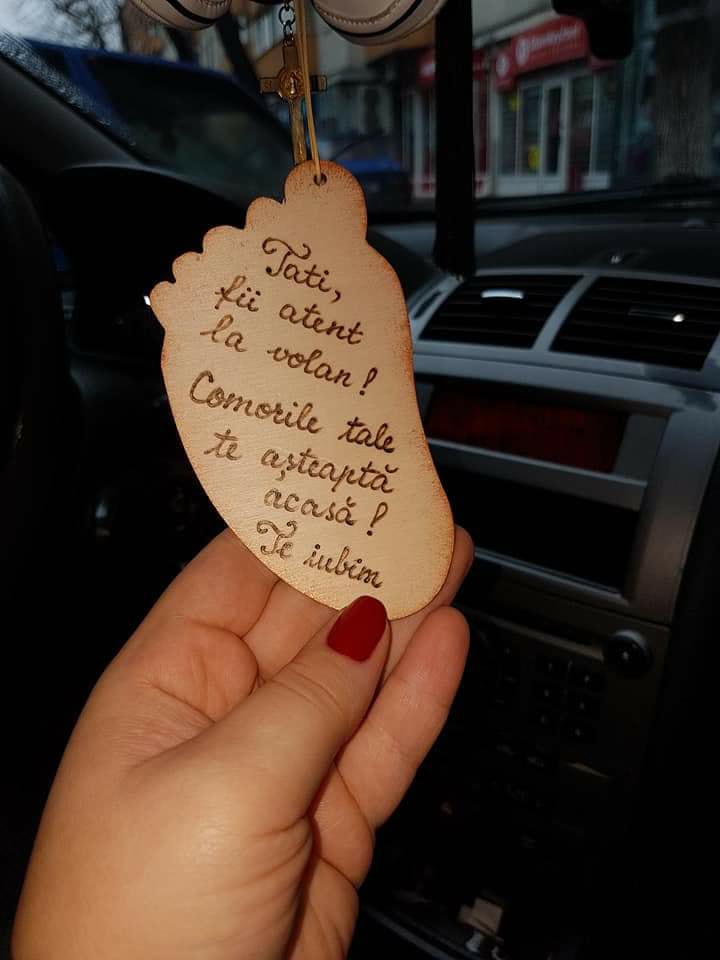 Tati,
fii atent
la volan!
Comorile tale
te așteaptă
acasă!
Te iubim